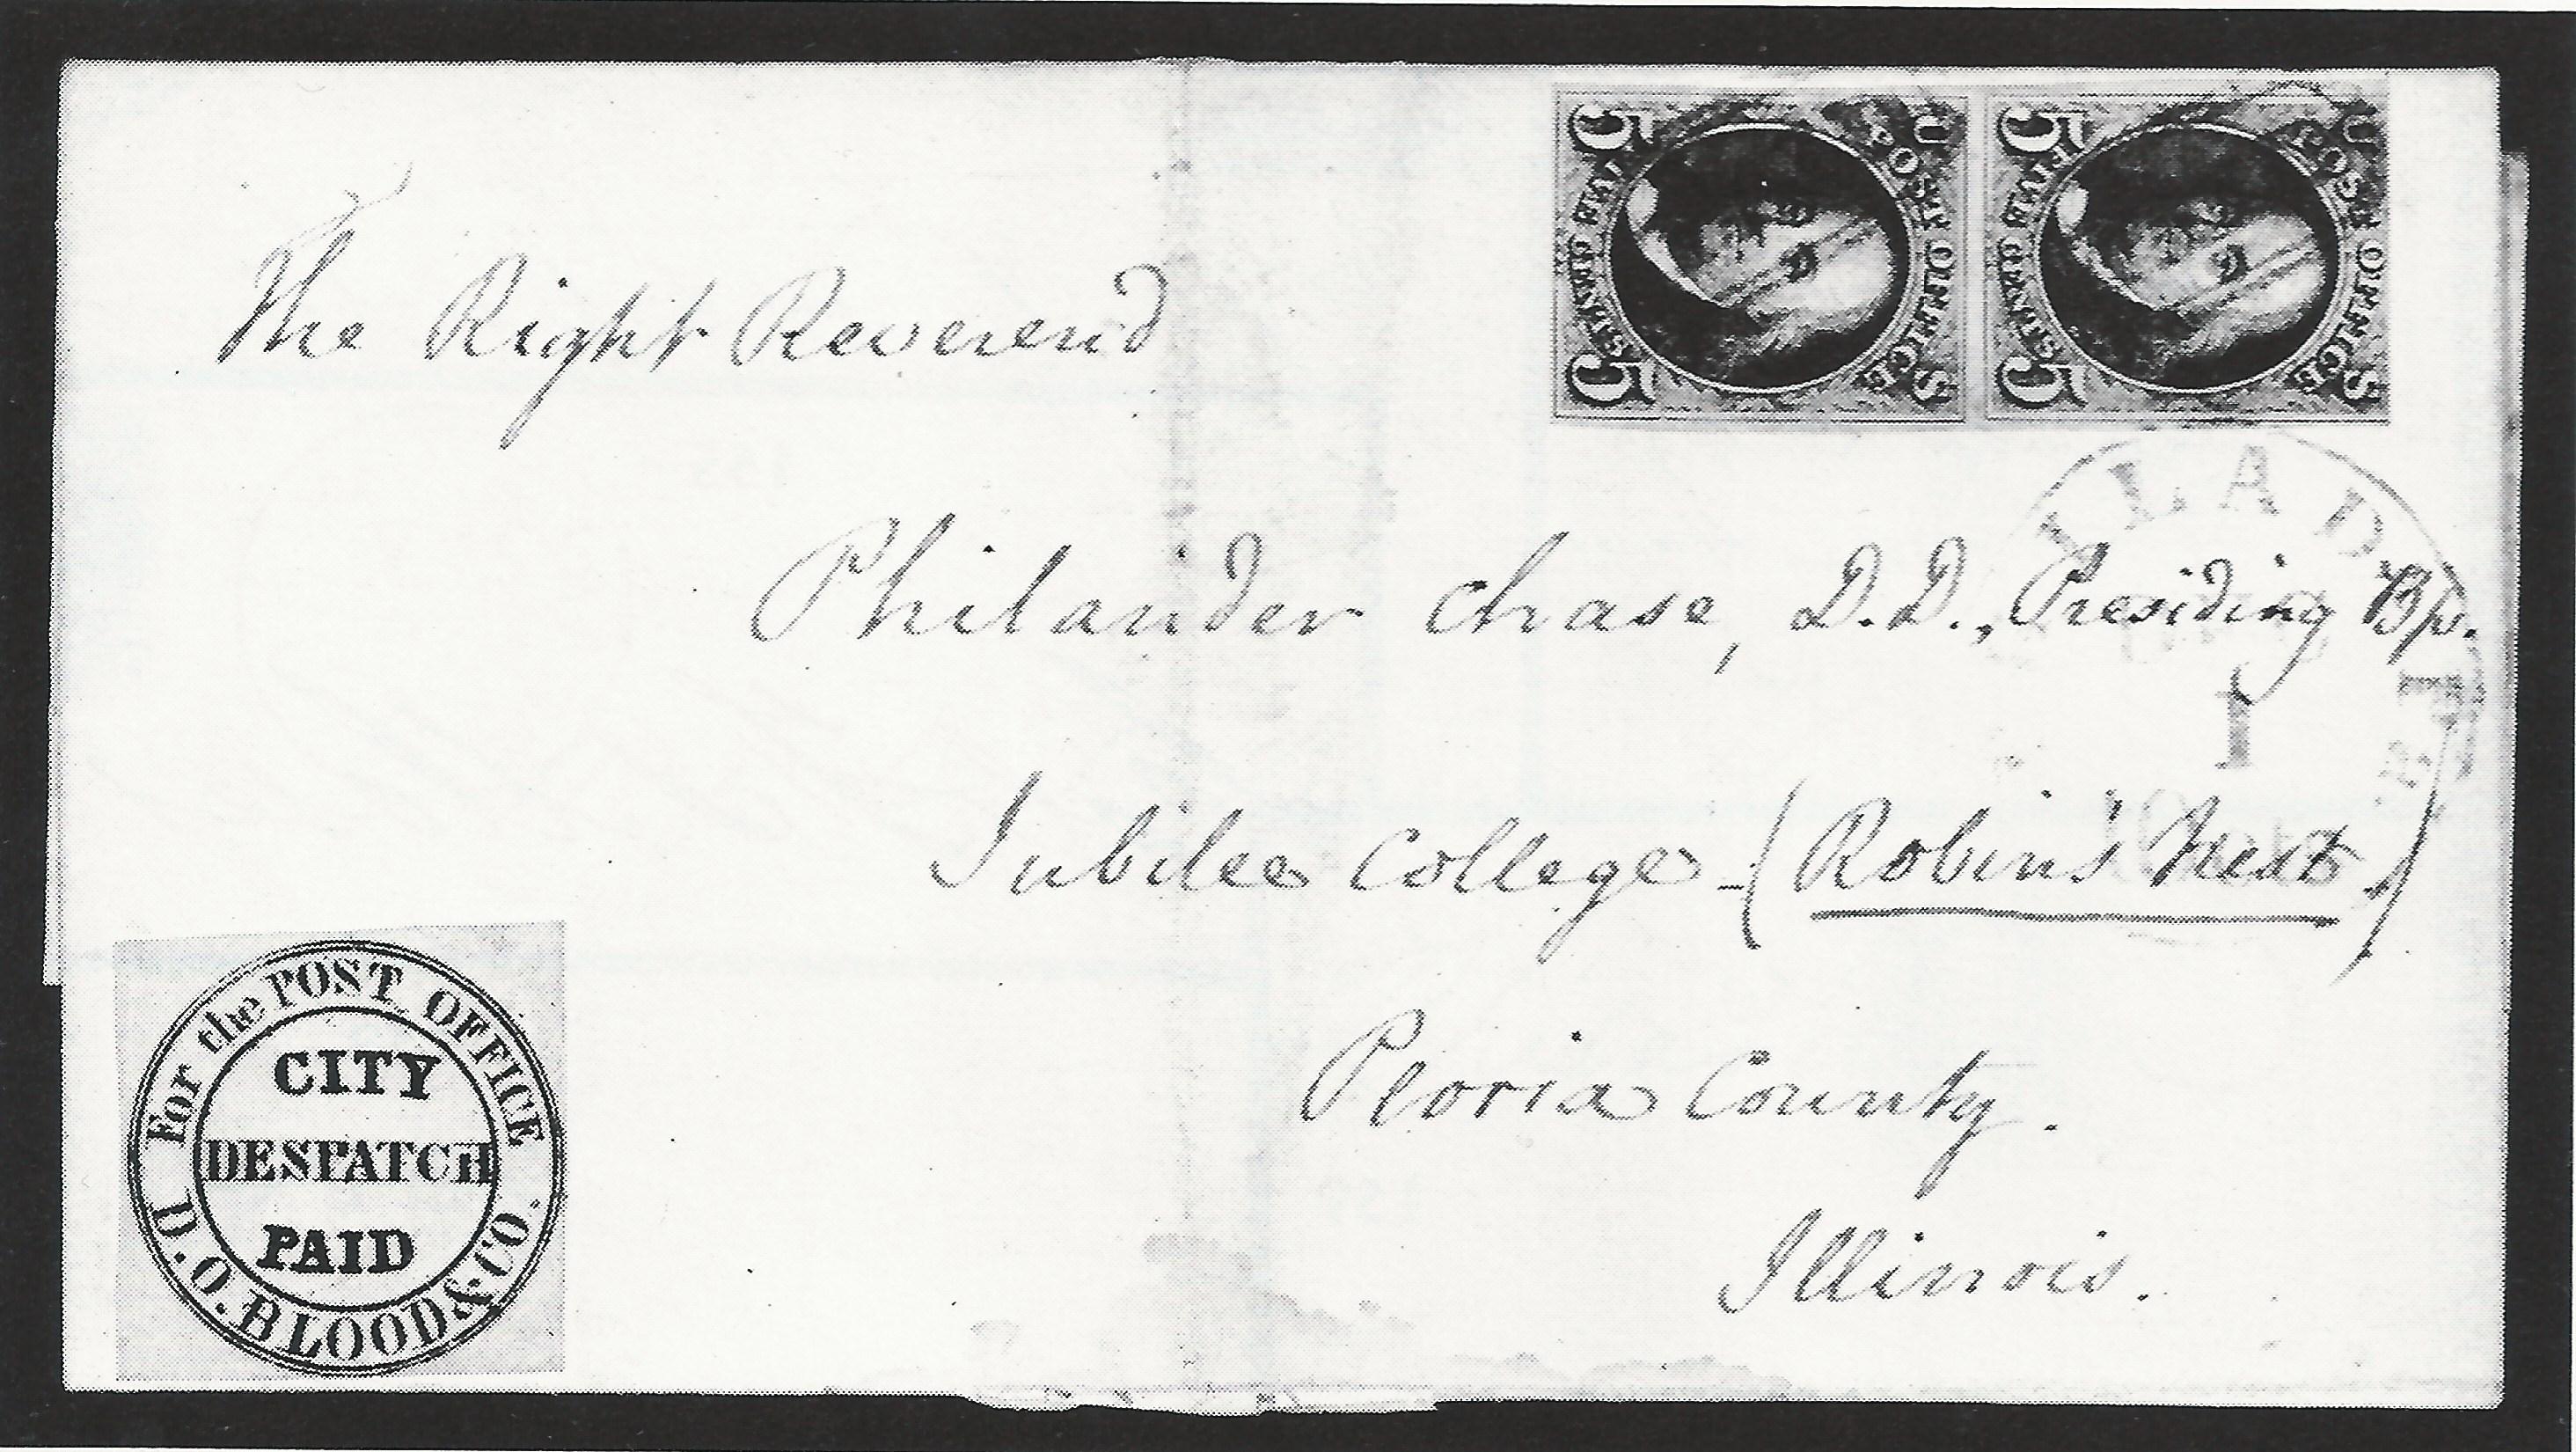 U POST OFFICE S
FIVE CENTS
5 5
U POST OFFICE S
FIVE CENTS
5 5
The Right Reverend
Philander Chase, D.D., Presiding Bp.
Jubilee College - (Robin's Nest.)
Peoria County.
Illinois.
ILADE
1
For the POST OFFICE
CITY
DESPATCH
PAID
D.O. BLOOD & CO.